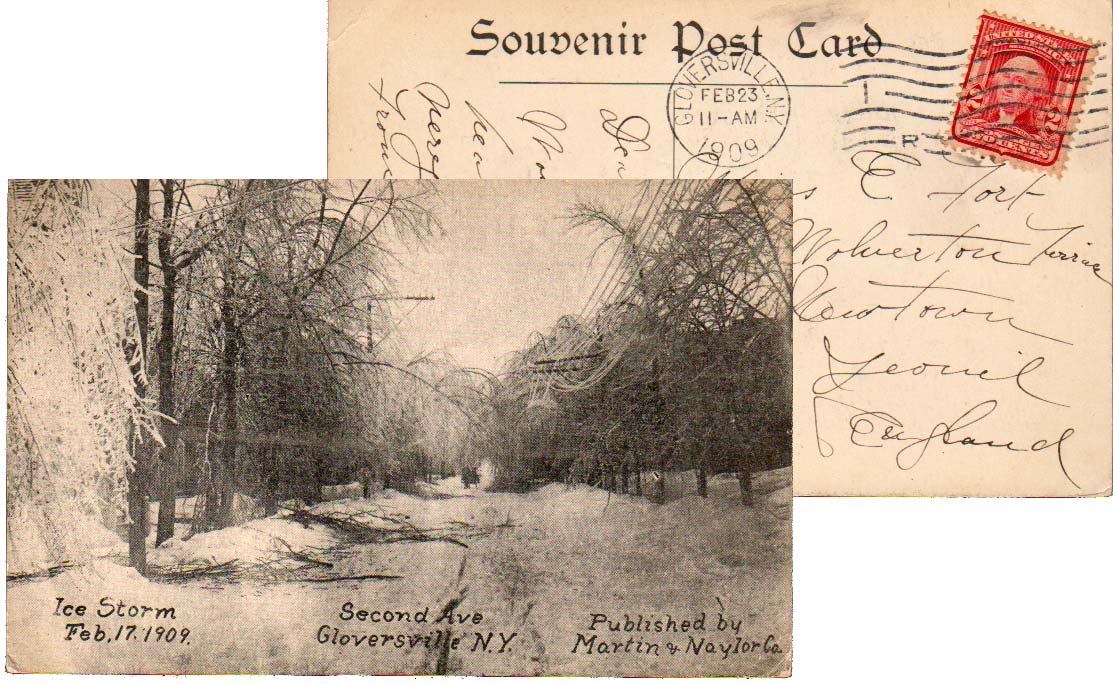 Souvenir Post Card
GLOVERSVILLE, N.Y.
FEB 23
11-AM
1909
R
UNITED STATES
2 2
TWO CENTS
E Fort
Wolverton Terrace
Newtown
Yeovil
England
Ice Storm
Feb, 17. 1909.
Second Ave
Gloversville N.Y.
Published by
Martin & Naylor Co.